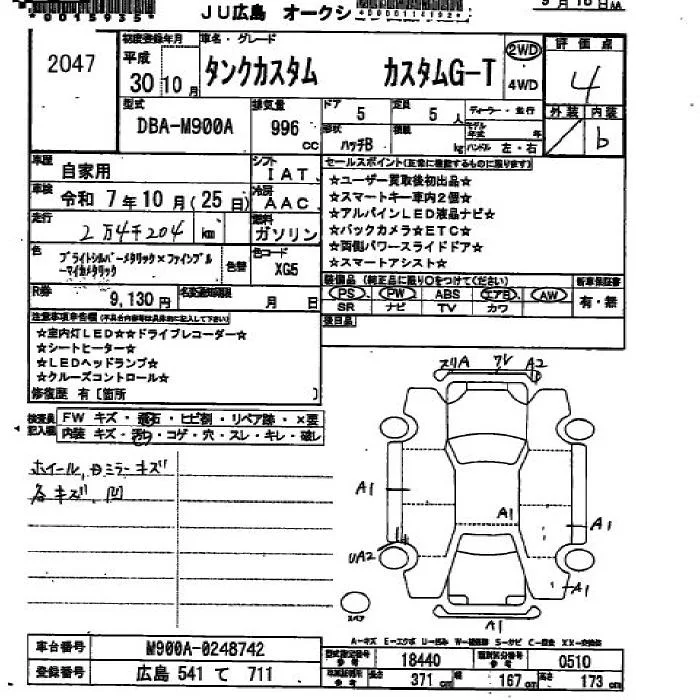 *0015935*
JU広島 オークシ
*00000114192*
2047
初度登録年月
平成
30 10 月
車名・グレード
タンクカスタム カスタムG-T
2WD
4WD
評価点
4
外装 内装
b
型式
DBA-M900A
排気量
996 cc
ドア
5
定員
5 人
形状
ハッチB
積載
kg
ディーラー・並行
モデル年式 年
ハンドル 左・右
車歴
自家用
シフト
IAT
車検
令和 7年10月(25日)
冷房
AAC
走行
2万4千204 km
燃料
ガソリン
色
ブライトシルバーメタリック×ファインブル
ーマイカメタリック
色替
色コード
XG5
R券
9,130円
名変通知期限
月 日
セールスポイント(正常に機能するものに限ります)
☆ユーザー買取後初出品☆
☆スマートキー車内2個☆
☆アルパインLED液晶ナビ☆
☆バックカメラ☆ETC☆
☆両側パワースライドドア☆
☆スマートアシスト☆
装備品(純正品に限り○をつけてください)
PS PW ABS エアB AW
SR ナビ TV カワ
新車保証書
有・無
後日品
注意事項申告欄(不具合内容等は具体的に記入して下さい)
☆室内灯LED☆☆ドライブレコーダー☆
☆シートヒーター☆
☆LEDヘッドランプ☆
☆クルーズコントロール☆
修復歴 有〔箇所 〕
検査員記入欄
FW キズ・飛石・ヒビ割・リペア跡・×要
内装 キズ・汚れ・コゲ・穴・スレ・キレ・破レ
ホイール、ドミラーキズ
各キズ、凹
スリA ワレ A2
A1
A1
A1
UA2
A1
A1
スペア
A-キズ E-エクボ U-凹み W-補修跡 S-サビ C-腐食 XX-交換済
車台番号
M900A-0248742
登録番号
広島 541 て 711
型式指定番号
参考
18440
類別区分番号
参考
0510
車検証明等
参考
長さ
371 cm
幅
167 cm
高さ
173 cm